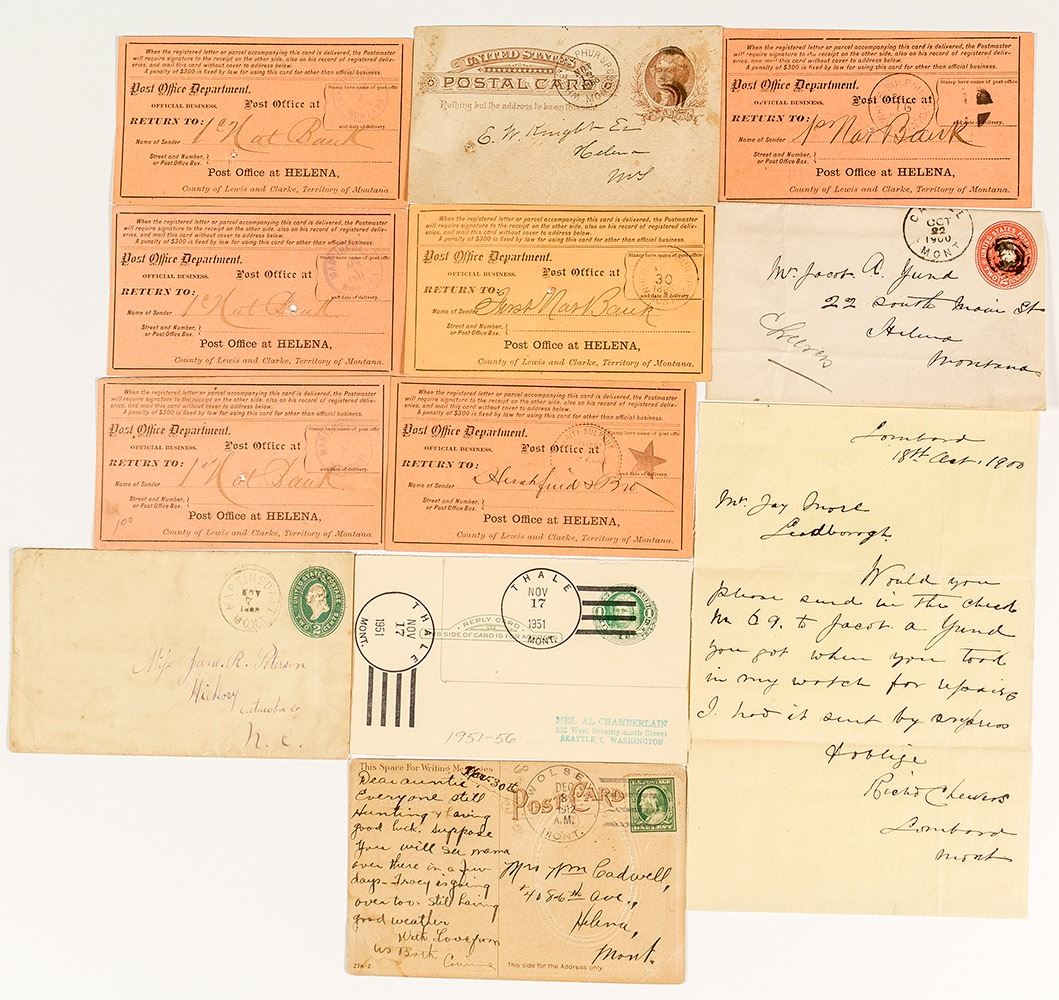 When the registered letter or parcel accompanying this card is delivered, the Postmaster
will require signature to the receipt on the other side, also on his record of registered deliv-
eries, and mail this card without cover to address below.
A penalty of $300 is fixed by law for using this card for other than official business.
Post Office Department.
OFFICIAL BUSINESS.
Post Office at
Stamp here name of post office
and date of delivery.
RETURN TO:
Name of Sender
1st Nat Bank
Street and Number,
or Post Office Box.
Post Office at HELENA,
County of Lewis and Clarke, Territory of Montana.
UNITED STATES
POSTAL CARD
Nothing but the address to be on this
E. W. Knight Er
Helena
MT
When the registered letter or parcel accompanying this card is delivered, the Postmaster
will require signature to the receipt on the other side, also on his record of registered deliv-
eries, and mail this card without cover to address below.
A penalty of $300 is fixed by law for using this card for other than official business.
Post Office Department.
OFFICIAL BUSINESS.
Post Office at
Stamp here name of post office
and date of delivery.
RETURN TO:
Name of Sender
1st Nat Bank
Street and Number,
or Post Office Box.
Post Office at HELENA,
County of Lewis and Clarke, Territory of Montana.
When the registered letter or parcel accompanying this card is delivered, the Postmaster
will require signature to the receipt on the other side, also on his record of registered deliv-
eries, and mail this card without cover to address below.
A penalty of $300 is fixed by law for using this card for other than official business.
Post Office Department.
OFFICIAL BUSINESS.
Post Office at
Stamp here name of post office
and date of delivery.
RETURN TO:
Name of Sender
1st Nat Bank
Street and Number,
or Post Office Box.
Post Office at HELENA,
County of Lewis and Clarke, Territory of Montana.
When the registered letter or parcel accompanying this card is delivered, the Postmaster
will require signature to the receipt on the other side, also on his record of registered deliv-
eries, and mail this card without cover to address below.
A penalty of $300 is fixed by law for using this card for other than official business.
Post Office Department.
OFFICIAL BUSINESS.
Post Office at
Stamp here name of post office
30
and date of delivery.
RETURN TO:
Name of Sender
First Nat Bank
Street and Number,
or Post Office Box.
Post Office at HELENA,
County of Lewis and Clarke, Territory of Montana.
OCT
22
1900
MONT
UNITED STATES
Mr. Jacob A. Yund
22 South Main St
Helena
Montana
Cheevers
When the registered letter or parcel accompanying this card is delivered, the Postmaster
will require signature to the receipt on the other side, also on his record of registered deliv-
eries, and mail this card without cover to address below.
A penalty of $300 is fixed by law for using this card for other than official business.
Post Office Department.
OFFICIAL BUSINESS.
Post Office at
Stamp here name of post office
and date of delivery.
RETURN TO:
Name of Sender
1st Nat Bank
Street and Number,
or Post Office Box.
100
Post Office at HELENA,
County of Lewis and Clarke, Territory of Montana.
When the registered letter or parcel accompanying this card is delivered, the Postmaster
will require signature to the receipt on the other side, also on his record of registered deliv-
eries, and mail this card without cover to address below.
A penalty of $300 is fixed by law for using this card for other than official business.
Post Office Department.
OFFICIAL BUSINESS.
Post Office at
Stamp here name of post office
and date of delivery.
RETURN TO:
Name of Sender
Hirshfield & Bro
Street and Number,
or Post Office Box.
Post Office at HELENA,
County of Lewis and Clarke, Territory of Montana.
Lombard
18th Oct. 1900
Mr. Jay More
Leadborogh
Would you
please send in the check
No 69. to Jacob A Yund
you got when you took
in my watch for repairs
I had it sent by express
& oblige
Richd Cheevers
Lombard
Mont
MARTINSDALE
MONT.
UNITED STATES POSTAGE
Miss Jane. R. Peterson
Hickory
Catawba Co
N. C.
THALE
NOV
17
1951
MONT.
THALE
NOV
17
1951
MONT.
REPLY CARD
SIDE OF CARD IS FOR
MRS. AL CHAMBERLAIN
West Seventy-ninth Street
SEATTLE 7, WASHINGTON
1951-56
This Space For Writing Messages
Nov. 30th
Dear auntie:
Everyone still
Hunting & having
good luck. Suppose
You will see mama
over there in a few
days. Tracy is going
over too. Still having
good weather
With Love from
us Both
Corinne
276-2
POST CARD
WOLSEY
DEC
3
1912
A.M.
MONT.
Mrs Wm Cadwell,
#408-6th Ave.,
Helena,
Mont.
This side for the Address only